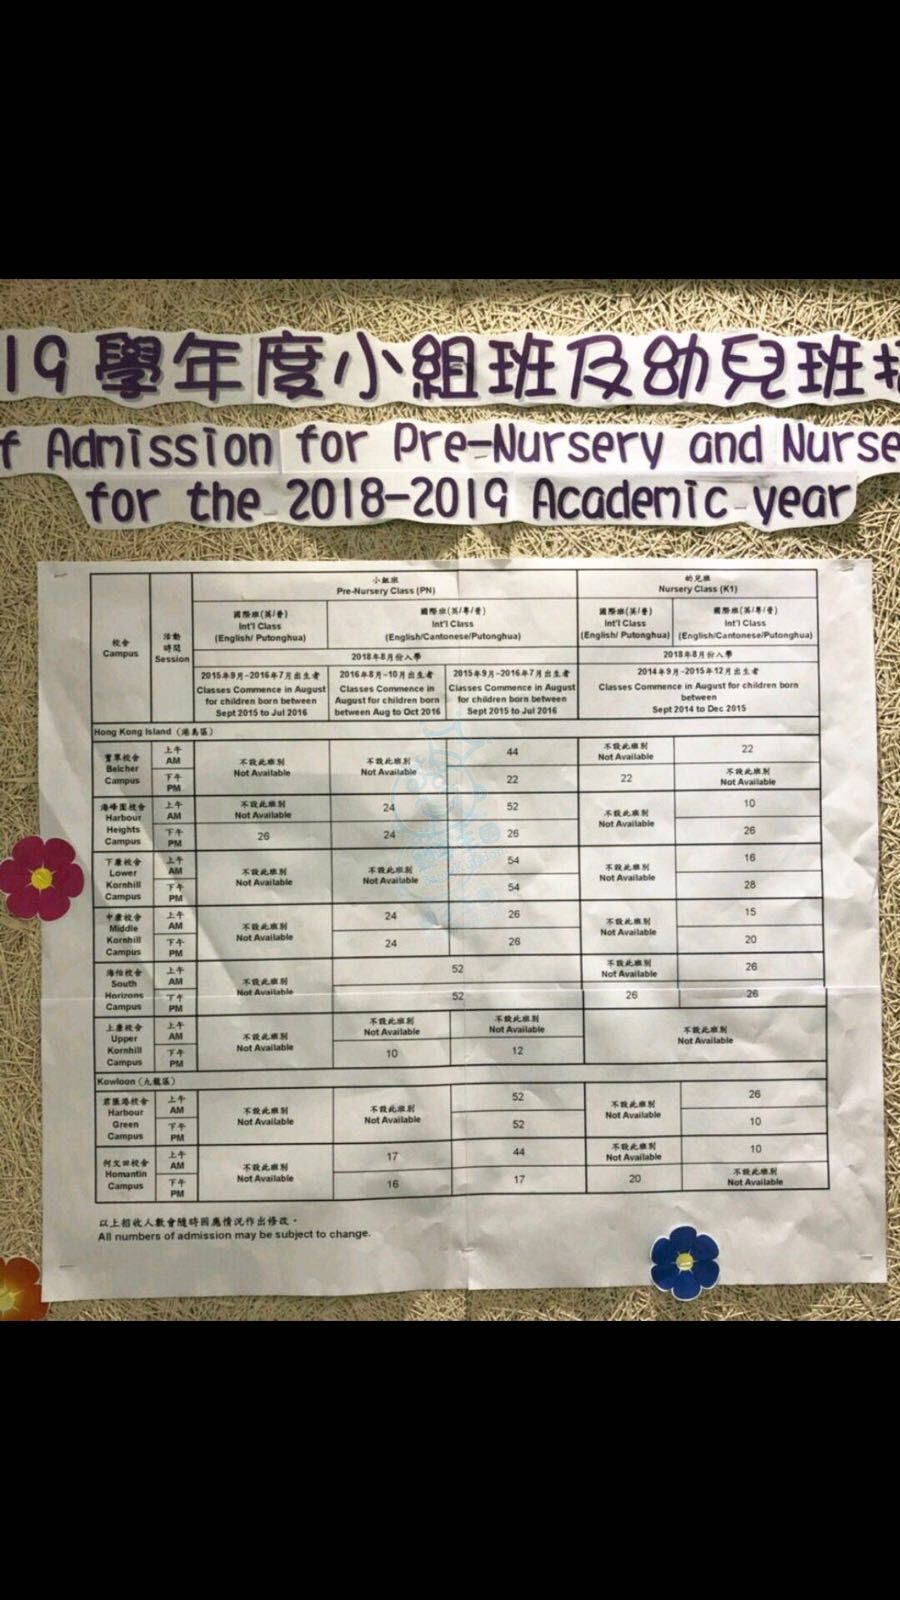 19 學年度小組班及幼兒班招
f Admission for Pre-Nursery and Nurse
for the 2018-2019 Academic year
校舍
Campus
活動
時間
Session
小組班
Pre-Nursery Class (PN)
幼兒班
Nursery Class (K1)
國際班(英/普)
Int'l Class
(English/ Putonghua)
國際班(英/粵/普)
Int'l Class
(English/Cantonese/Putonghua)
國際班(英/普)
Int'l Class
(English/ Putonghua)
國際班(英/粵/普)
Int'l Class
(English/Cantonese/Putonghua)
2018年8月份入學
2018年8月份入學
2015年9月-2016年7月出生者
Classes Commence in August
for children born between
Sept 2015 to Jul 2016
2016年8月-10月出生者
Classes Commence in
August for children born
between Aug to Oct 2016
2015年9月-2016年7月出生者
Classes Commence in August
for children born between
Sept 2015 to Jul 2016
2014年9月-2015年12月出生者
Classes Commence in August for children born
between
Sept 2014 to Dec 2015
Hong Kong Island (港島區)
寶翠校舍
Belcher
Campus
上午
AM
不設此班別
Not Available
不設此班別
Not Available
44
不設此班別
Not Available
22
下午
PM
22
22
不設此班別
Not Available
海峰園校舍
Harbour
Heights
Campus
上午
AM
不設此班別
Not Available
24
52
不設此班別
Not Available
10
下午
PM
26
24
26
26
下康校舍
Lower
Kornhill
Campus
上午
AM
不設此班別
Not Available
不設此班別
Not Available
54
不設此班別
Not Available
16
下午
PM
54
28
中康校舍
Middle
Kornhill
Campus
上午
AM
不設此班別
Not Available
24
26
不設此班別
Not Available
15
下午
PM
24
26
20
海怡校舍
South
Horizons
Campus
上午
AM
不設此班別
Not Available
52
不設此班別
Not Available
26
下午
PM
52
26
26
上康校舍
Upper
Kornhill
Campus
上午
AM
不設此班別
Not Available
不設此班別
Not Available
不設此班別
Not Available
不設此班別
Not Available
下午
PM
10
12
Kowloon (九龍區)
君匯港校舍
Harbour
Green
Campus
上午
AM
不設此班別
Not Available
不設此班別
Not Available
52
不設此班別
Not Available
26
下午
PM
52
10
何文田校舍
Homantin
Campus
上午
AM
不設此班別
Not Available
17
44
不設此班別
Not Available
10
下午
PM
16
17
20
不設此班別
Not Available
以上招收人數會隨時因應情況作出修改。
All numbers of admission may be subject to change.